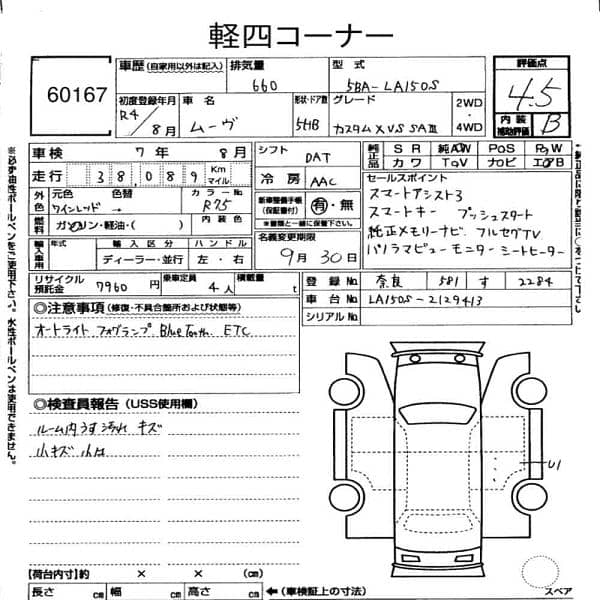 軽四コーナー
60167
車歴 (自家用以外は記入) 排気量 型式
660 5BA-LA150S
評価点
4.5
初度登録年月 車名 形状・ドア数 グレード 2WD・4WD
R4/8月 ムーヴ 5HB カスタムXVS SAIII
内装補助評価 B
車検 7年 8月 シフト DAT
純正品 SR 純AW PS PW
カワ TV ナビ エアB
走行 38,089 Km マイル 冷房 AAC
セールスポイント
スマートアシスト3
スマートキー プッシュスタート
純正メモリーナビ フルセグTV
パノラマビューモニター シートヒーター
外色 元色 色替 カラーNo.
ワインレッド → R75
新車整備手帳(保証書付) 有・無
※書類と一緒に保管下さい
燃料 ガソリン・軽油・( ) 内装色
名義変更期限
9月30日
輸入車用 年式 輸入区分 ハンドル
ディーラー・並行 左・右
リサイクル預託金 7960円 乗車定員 4人 積載量 t
登録No. 奈良 581 す 2284
車台No. LA150S-2129413
シリアルNo.
◎注意事項 (修復・不具合箇所および状態等)
オートライト フォグランプ BlueTooth ETC
◎検査員報告 (USS使用欄)
ルーム内うす汚れ キズ
小キズ 小凹
U1
【荷台内寸】約 × × (cm)
長さ cm 幅 cm 高さ cm ←(車検証上の寸法)
スペア
※必ず油性ボールペンをご使用下さい。水性ボールペンは使用できません。